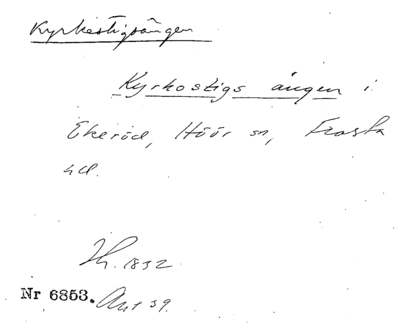 Kyrkestigsängen
Kyrkostigs ängen i
Ekeröd, Höör sn, Frosta
hd.
Th. 1832
Nr 6853. Ant 39.